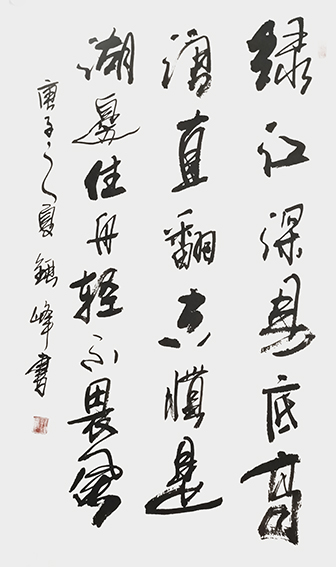 绿江深見底高
浪直翻空慣是
湖邊住舟轻不畏风
庚子之夏 峰書